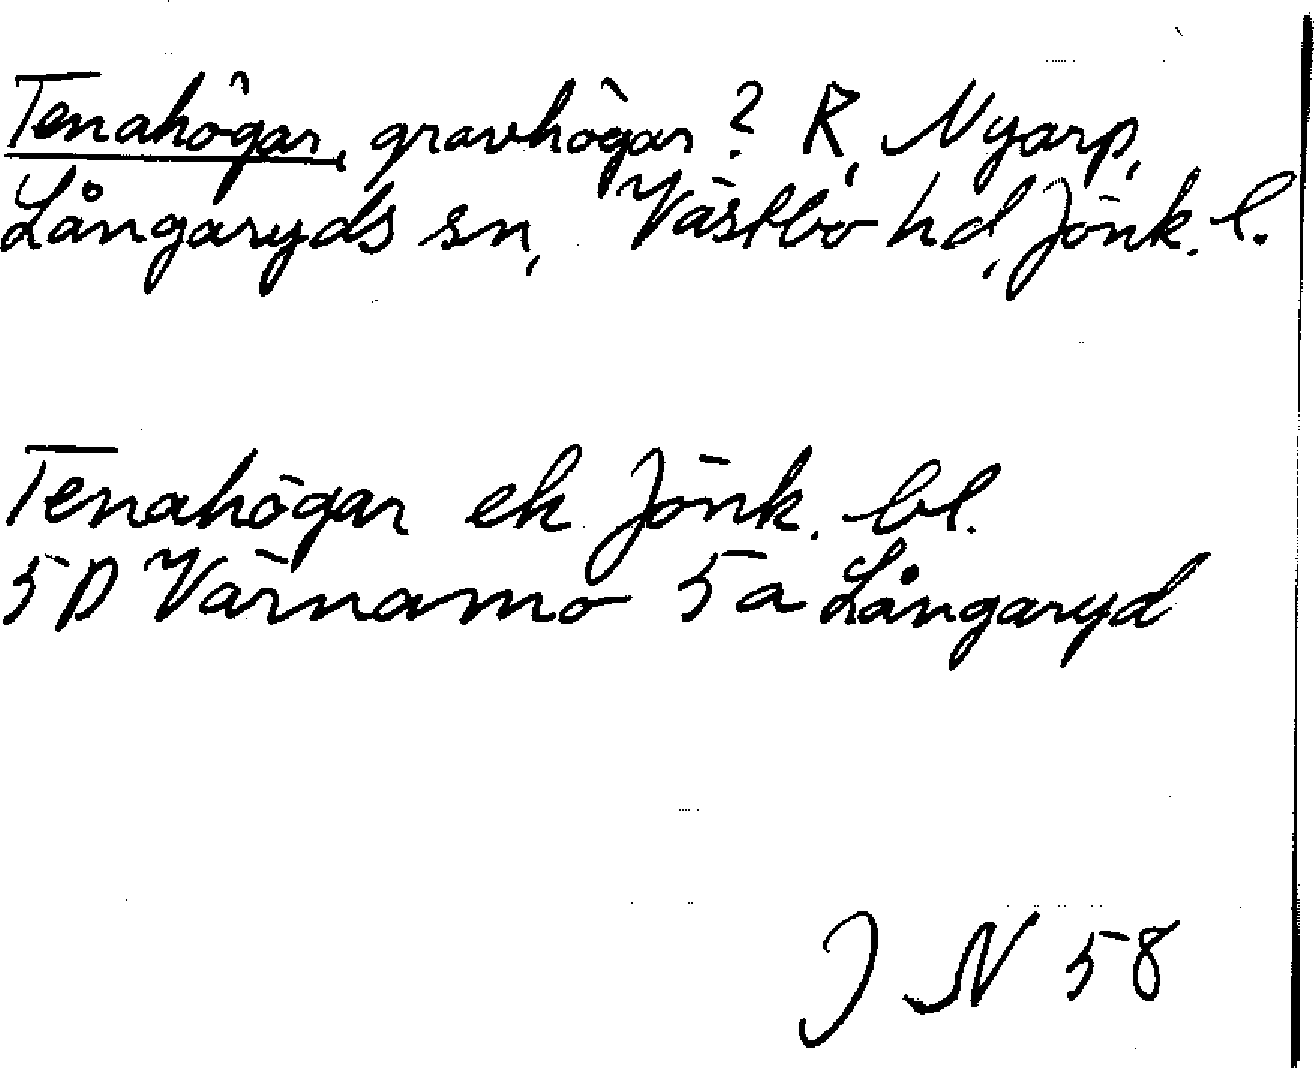 Tenahögar, gravhögar? R, Nyarp,
Långaryds sn, Västbo hd, Jönk. l.
Tenahögar ek Jönk. bl.
5D Värnamo 5a Långaryd
J N 58